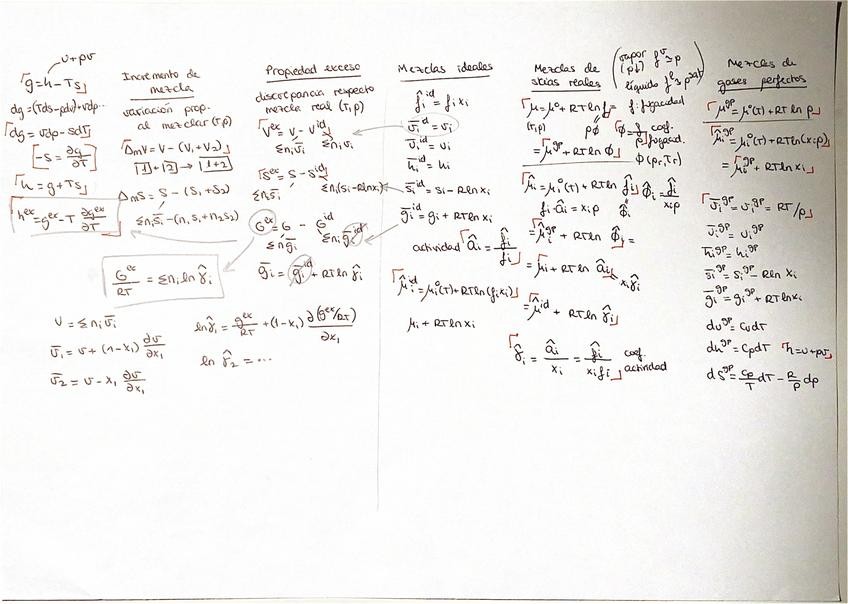 u+pv
g=h-Ts
dg=(Tds-pdv)+vdp...
dg=vdp-sdT
[-s=∂g/∂T]
h=g+Ts
h^ex=g^ex-T ∂g^ex/∂T
Incremento de
mezcla
variación prop.
al mezclar (T,p)
ΔmV=V-(V₁+V₂)
1+2→1+2
ΔmS=S-(S₁+S₂)
Σnᵢs̄ᵢ-(n₁s₁+n₂s₂)
G^ex/RT=Σnᵢ ln γ̂ᵢ
V=Σnᵢv̄ᵢ
v̄₁=v+(1-x₁) ∂v/∂x₁
v̄₂=v-x₁ ∂v/∂x₁
Propiedad exceso
discrepancia respecto
mezcla real (T,p)
V^ex=V-V^id
Σnᵢv̄ᵢ Σnᵢvᵢ
S^ex=S-S^id
Σnᵢs̄ᵢ Σnᵢ(sᵢ-Rlnxᵢ)
G^ex=G-G^id
Σnᵢḡᵢ Σnᵢḡᵢ^id
ḡᵢ=ḡᵢ^id+RTln γ̂ᵢ
ln γ̂₁=g^ex/RT+(1-x₁) ∂(g^ex/RT)/∂x₁
ln γ̂₂=...
Mezclas ideales
f̂ᵢ^id=fᵢxᵢ
v̄ᵢ^id=vᵢ
ūᵢ^id=uᵢ
h̄ᵢ^id=hᵢ
s̄ᵢ^id=sᵢ-Rlnxᵢ
ḡᵢ^id=gᵢ+RTlnxᵢ
actividad âᵢ=f̂ᵢ/fᵢ
μ̂ᵢ^id=μᵢ°(T)+RTln(fᵢxᵢ)
μᵢ+RTlnxᵢ
Mezclas de
stcias reales
(vapor f^v≃p
(p↓)
líquido f^l≃p^sat)
μ=μ°+RTlnf f: fugacidad
(T,p) pϕ ϕ=f/p coef. fugacid.
=μ^gp+RTlnϕ ϕ(pr,Tr)
μ̂ᵢ=μᵢ°(T)+RTln f̂ᵢ ϕ̂ᵢ=f̂ᵢ/xᵢp
fᵢ·âᵢ=xᵢpϕ̂ᵢ
=μ̂ᵢ^gp+RTln ϕ̂ᵢ=
=μᵢ+RTln âᵢ
xᵢγ̂ᵢ
=μ̂ᵢ^id+RTln γ̂ᵢ
γ̂ᵢ=âᵢ/xᵢ=f̂ᵢ/xᵢfᵢ coef. actividad
Mezclas de
gases perfectos
μ^gp=μ°(T)+RTlnp
μ̂ᵢ^gp=μᵢ°(T)+RTln(xᵢp)
=μᵢ^gp+RTlnxᵢ
v̄ᵢ^gp=vᵢ^gp=RT/p
ūᵢ^gp=uᵢ^gp
h̄ᵢ^gp=hᵢ^gp
s̄ᵢ^gp=sᵢ^gp-Rlnxᵢ
ḡᵢ^gp=gᵢ^gp+RTlnxᵢ
du^gp=cvdT
dh^gp=cpdT h=u+pv
ds^gp=cp/T dT-R/p dp